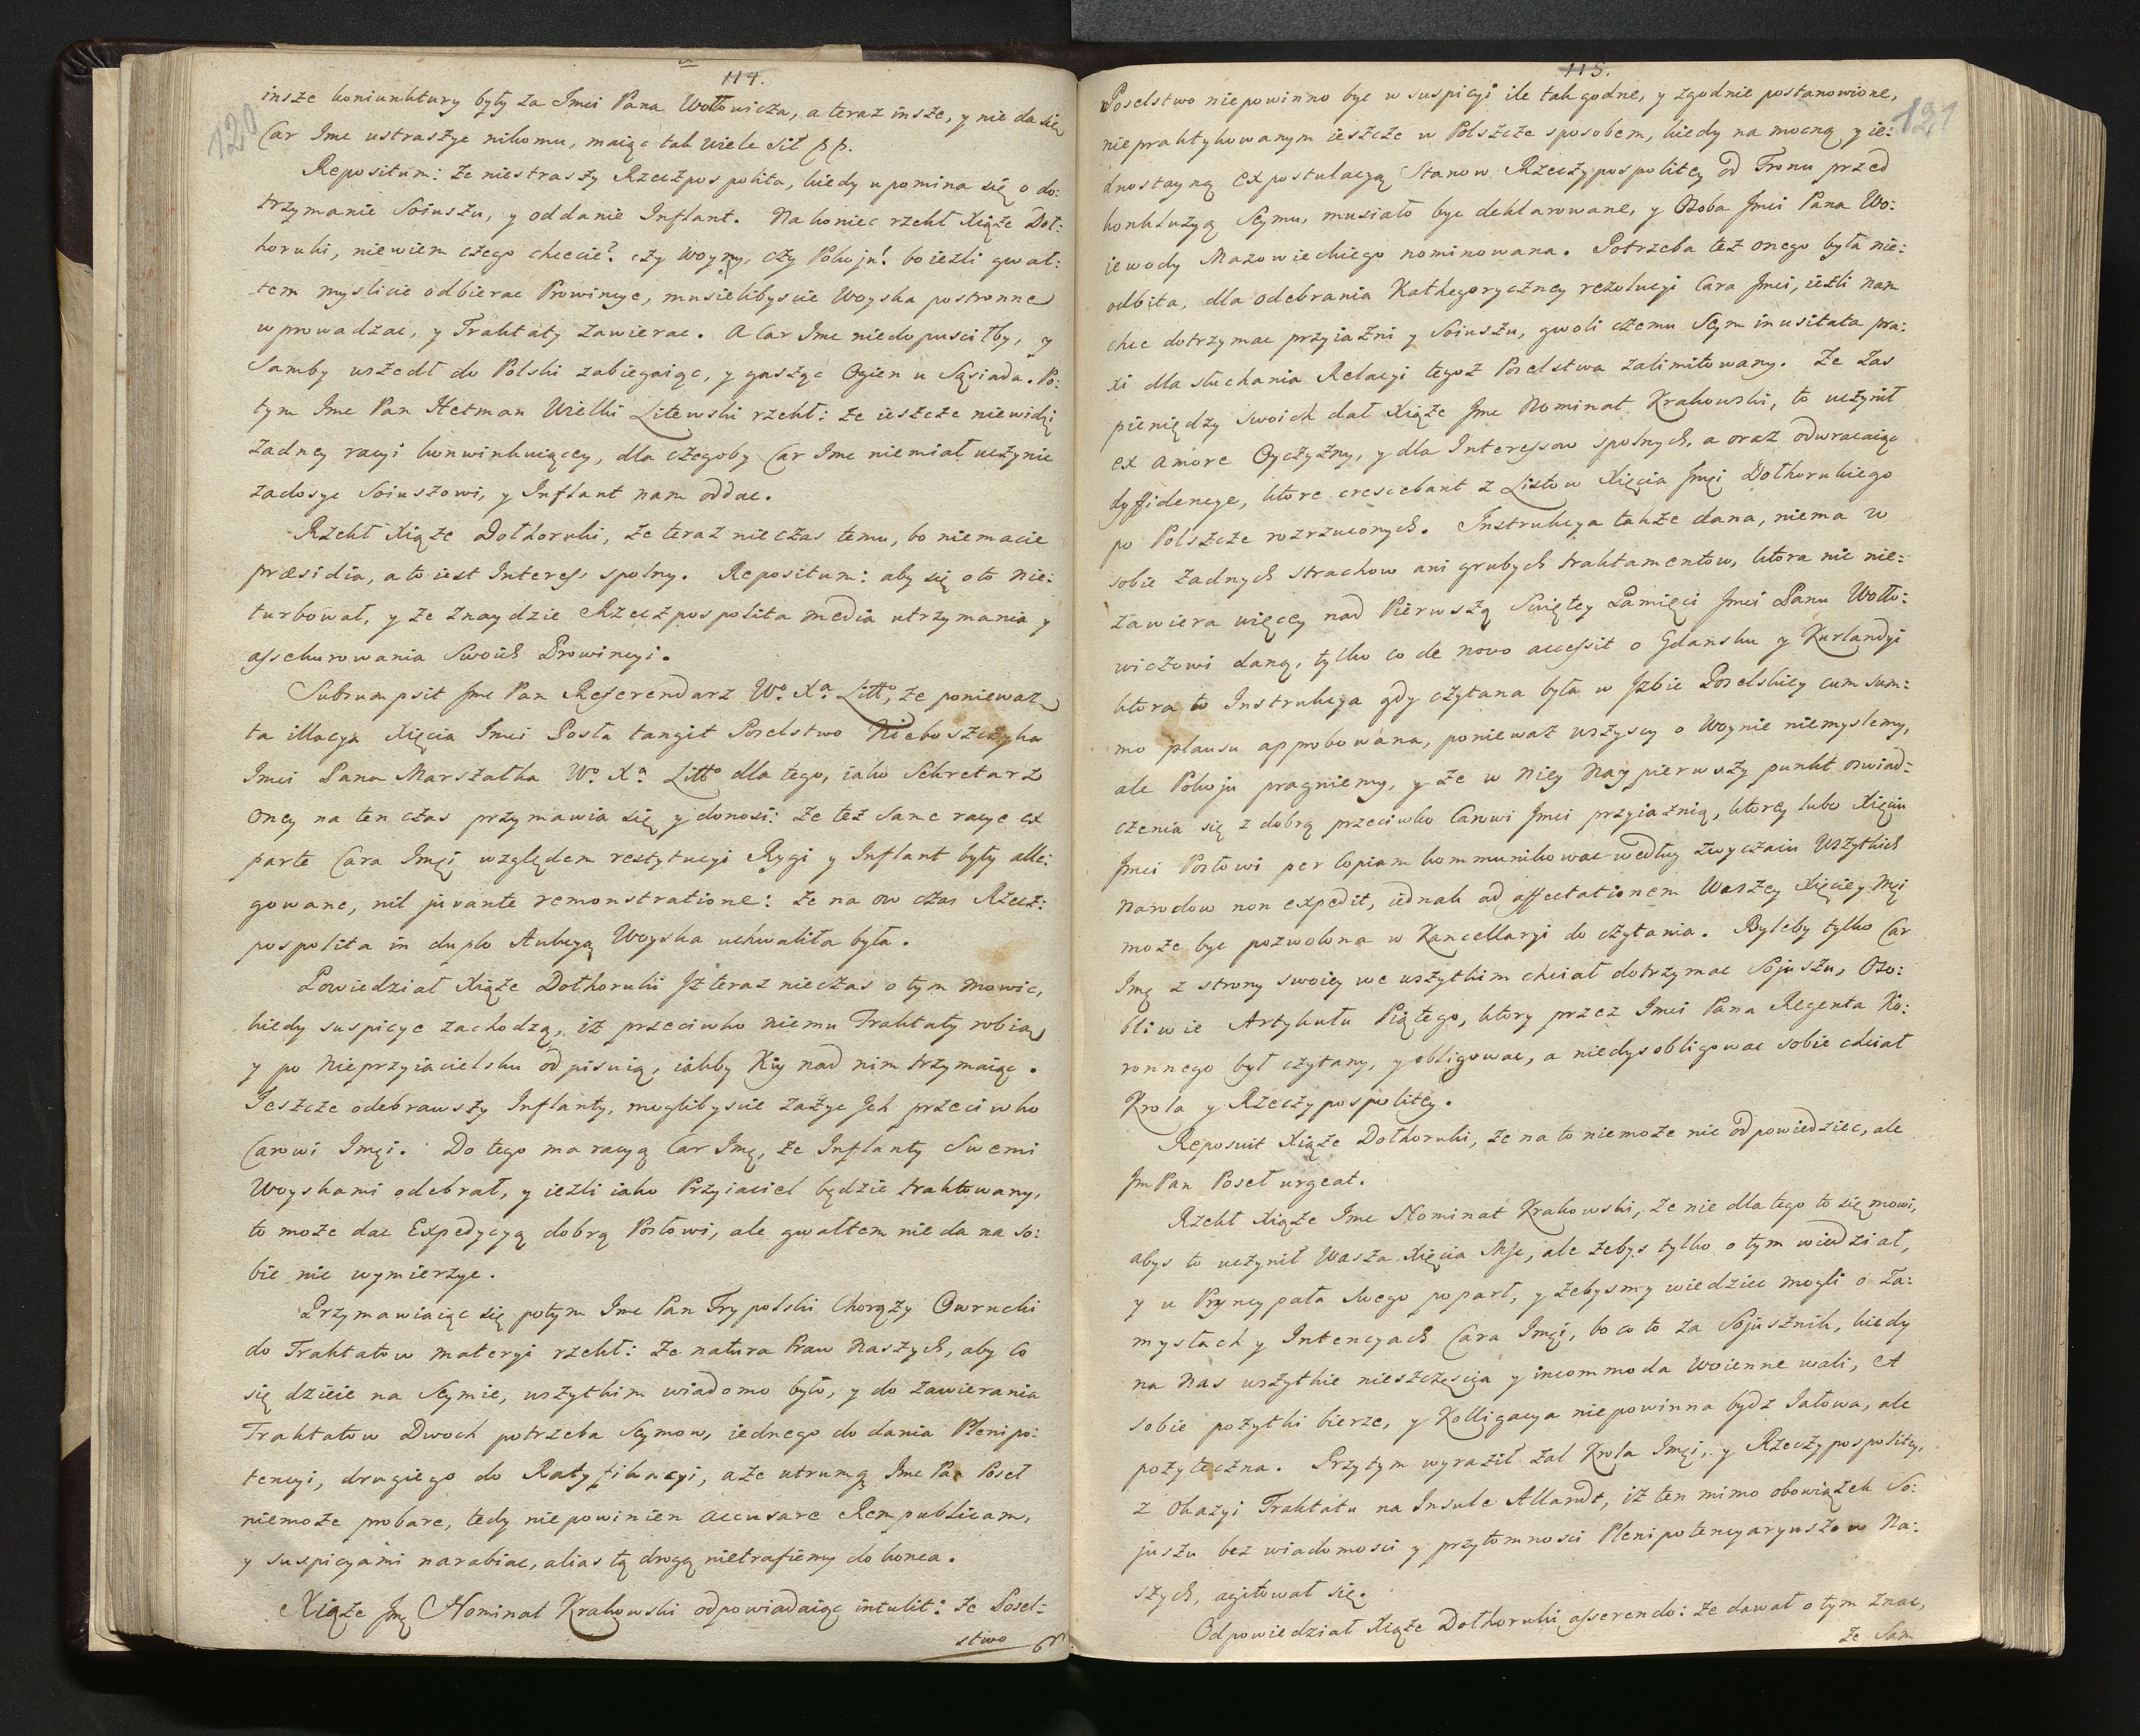 114.
120
insze koniunktury były za Jmci Pana Wołłowicza, a teraz insze, y nie da się
Car Jmc ustraszyc nikomu, maiąc tak wiele sił pp.
Repositum: że niestraszy Rzeczpospolita, kiedy upomina się o do:
trzymanie Soiuszu, y oddanie Inflant. Nakoniec rzekł Xiąże Doł:
horuki, niewiem czego chcecie? czy Woyny, czy Pokoju! bo ieżli gwał:
tem myslicie odbierac Prowincye, musielibyscie Woyska postronne
wprowadzac, y Traktaty zawierac. A Car Jmc niedopusciłby, y
Samby uszedł do Polski zabiegaiąc, y gasząc Ogien u Sąsiada. Po:
tym Jmc Pan Hetman Wielki Litewski rzekł: że ieszcze niewidzi
żadney racyi konwinkuiącey, dla czegoby Car Jmc niemiał uczynic
zadosyc Soiuszowi, y Inflant nam oddac.
Rzekł Xiąże Dołhoruki, że teraz nie czas temu, bo niemacie
præsidia, a to iest Interess spolny. Repositum: aby się o to nie:
turbował, y że znaydzie Rzeczpospolita media utrzymania y
assekurowania Swoich Prowincyi.
Subsumpsit Jmc Pan Referendarz Wo. Xa. Litto, że ponieważ
ta illacya Xięcia Jmci Posła tangit Poselstwo Nieboszczyka
Jmci Pana Marszałka Wo. Xa. Litto dla tego, iako Sekretarz
oney na ten czas przymawia się y donosi: że też same racye ex
parte Cara Jmći względem restytucyi Rygi y Inflant były alle:
gowane, nil juvante remonstratione: że na ow czas Rzecz:
pospolita in duplo Aukcyą Woyska uchwaliła była.
Powiedział Xiąże Dołhoruki Jż teraz nieczas o tym mowic,
kiedy suspicye zachodzą, iż przeciwko niemu Traktaty robią
y po nieprzyiacielsku odpisuią, iakby Kiy nad nim trzymaiąc.
Jeszcze odebrawszy Inflanty, moglibyscie zażyc Jch przeciwko
Carowi Jmći. Do tego ma racyą Car Jmć, że Inflanty Swemi
Woyskami odebrał, y ieżli iako Przyiaciel będzie traktowany,
to może dac Expedycyą dobrą Posłowi, ale gwałtem nie da na so:
bie nic wymierzyc.
Przymawiaiąc się potym Jmc Pan Trypolski Chorąży Owrucki
do Traktatow materyi rzekł: że natura Praw Naszych, aby co
się dzieie na Seymie, wszytkim wiadomo było, y do zawierania
Traktatow Dwoch potrzeba Seymow, iednego do dania Plenipo:
tencyi, drugiego do Ratyfikacyi, a że utrumq Jmc Pan Poseł
niemoże probare, tedy niepowinien accusare Rempublicam,
y suspicyami narabiac, alias tą drogą nietrafiemy do konca.
Xiąże Jmć Nominat Krakowski odpowiadaiąc intulit: że Posel-
stwo
115.
121
Poselstwo niepowinno byc w suspicyi ile tak godne, y zgodnie postanowione,
niepraktykowanym ieszcze w Polszcze sposobem, kiedy na mocną y ie:
dnostayną expostulacyą Stanow Rzeczypospolitey od Tronu przed
konkluzyą Seymu, musiało byc deklarowane, y Osoba Jmci Pana Wo:
iewody Mazowieckiego nominowana. Potrzeba też onego była nie:
odbita, dla odebrania Kathegoryczney rezolucyi Cara Jmci, ieżli nam
chce dotrzymac przyiazni y Soiuszu, gwoli czemu Seym inusitata pra:
xi dla słuchania Relacyi tegoż Poselstwa zalimitowany. Że zas
pieniędzy swoich dał Xiąże Jmc Nominat Krakowski, to uczynił
ex amore Oyczyzny, y dla Interessow spolnych, a oraz odwracaiąc
dyffidencye, ktore crescebant z Listow Xięcia Jmći Dołhorukiego
po Polszcze rozrzuconych. Instrukcya także dana, niema w
sobie żadnych strachow ani grubych traktamentow, ktora nic nie:
zawiera więcey nad Pierwszą Swiętey Pamięci Jmci Panu Wołło:
wiczowi daną, tylko co de novo accessit o Gdansku y Kurlandyi
ktora to Instrukcya gdy czytana była w Jzbie Poselskiey cum sum:
mo plausu approbowana, ponieważ wszyscy o Woynie niemyslemy,
ale Pokoju pragniemy, y że w niey Naypierwszy punkt oswiad:
czenia się z dobrą przeciwko Carowi Jmci przyiaznią, ktorey lubo Xięciu
Jmci Posłowi per Copiam kommunikowac według zwyczaiu Wszytkich
Narodow non expedit, iednak ad affectationem Waszey Xięcicy Mći
może byc pozwolona w Kancellaryi do czytania. Byleby tylko Car
Jmć z strony swoiey we wszytkim chciał dotrzymac Sojuszu, Oso:
bliwie Artykułu Piątego, ktory przez Jmci Pana Regenta Ko:
ronnego był czytany, y obligowac, a niedysobligowac sobie chciał
Krola y Rzeczypospolitey.
Reposuit Xiąże Dołhoruki, że na to niemoże nic odpowiedziec, ale
Jm Pan Poseł urgeat.
Rzekł Xiąże Jmc Nominat Krakowski, że nie dla tego to się mowi,
abys to uczynił Wasza Xięcia Msc, ale żebys tylko o tym wiedział,
y u Pryncypała swego poparł, y żebysmy wiedziec mogli o za:
mysłach y Intencyach Cara Jmći, bo co to za Sojusznik, kiedy
na Nas wszytkie nieszczęscia y incommoda Woienne wali, A
sobie pożytki bierze, y Kolligacya niepowinna bydz Jałowa, ale
pożyteczna. Przytym wyraził żal Krola Jmći, y Rzeczypospolitey,
z Okazyi Traktatu na Insule Allandt, iż ten mimo obowiązek So:
juszu bez wiadomosci y przytomnosci Plenipotencyaryuszow Na:
szych, agitował się.
Odpowiedział Xiąże Dołhoruki asserendo: że dawał o tym znac,
że Sam